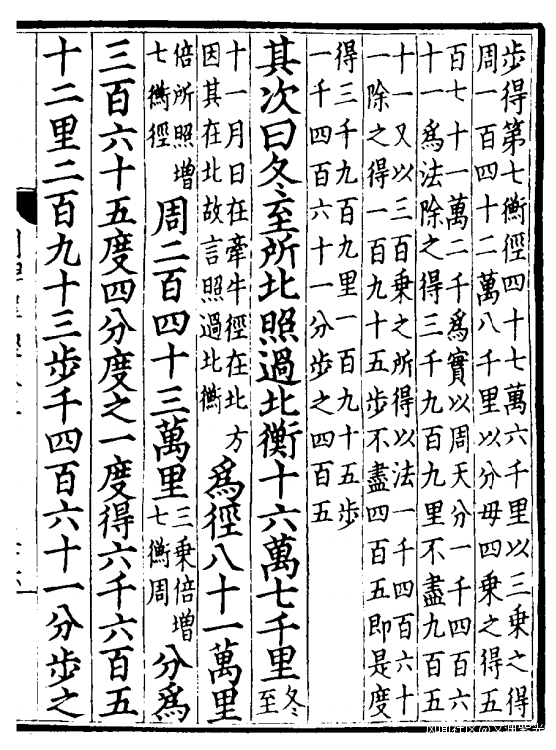 步得第七衡徑四十七萬六千里以三乘之得
周一百四十二萬八千里以分母四乘之得五
百七十一萬二千爲實以周天分一千四百六
十一爲法除之得三千九百九里不盡九百五
十一又以三百乘之所得以法一千四百六十
一除之得一百九十五步不盡四百五即是度
得三千九百九里一百九十五步
一千四百六十一分步之四百五
其次曰冬至所北照過北衡十六萬七千里冬至
十一月日在牽牛徑在北方
因其在北故言照過北衡
爲徑八十一萬里
倍所照增
七衡徑
周二百四十三萬里
三乘倍增
七衡周
分爲
三百六十五度四分度之一度得六千六百五
十二里二百九十三步千四百六十一分步之